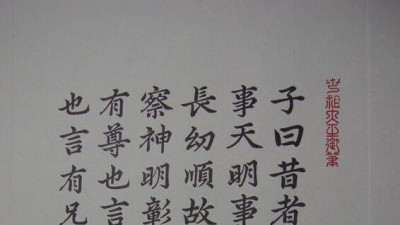 子曰昔者
事天明事
長幼順故
察神明彰
有尊也言
也言有兄